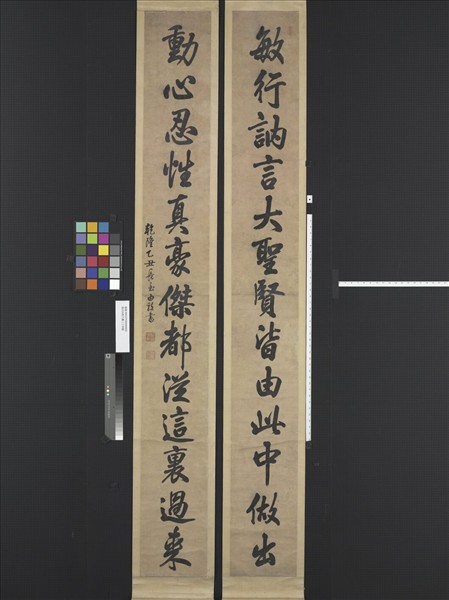 敏行訥言大聖賢皆由此中做出
動心忍性真豪傑都從這裏過來
乾隆乙丑長至